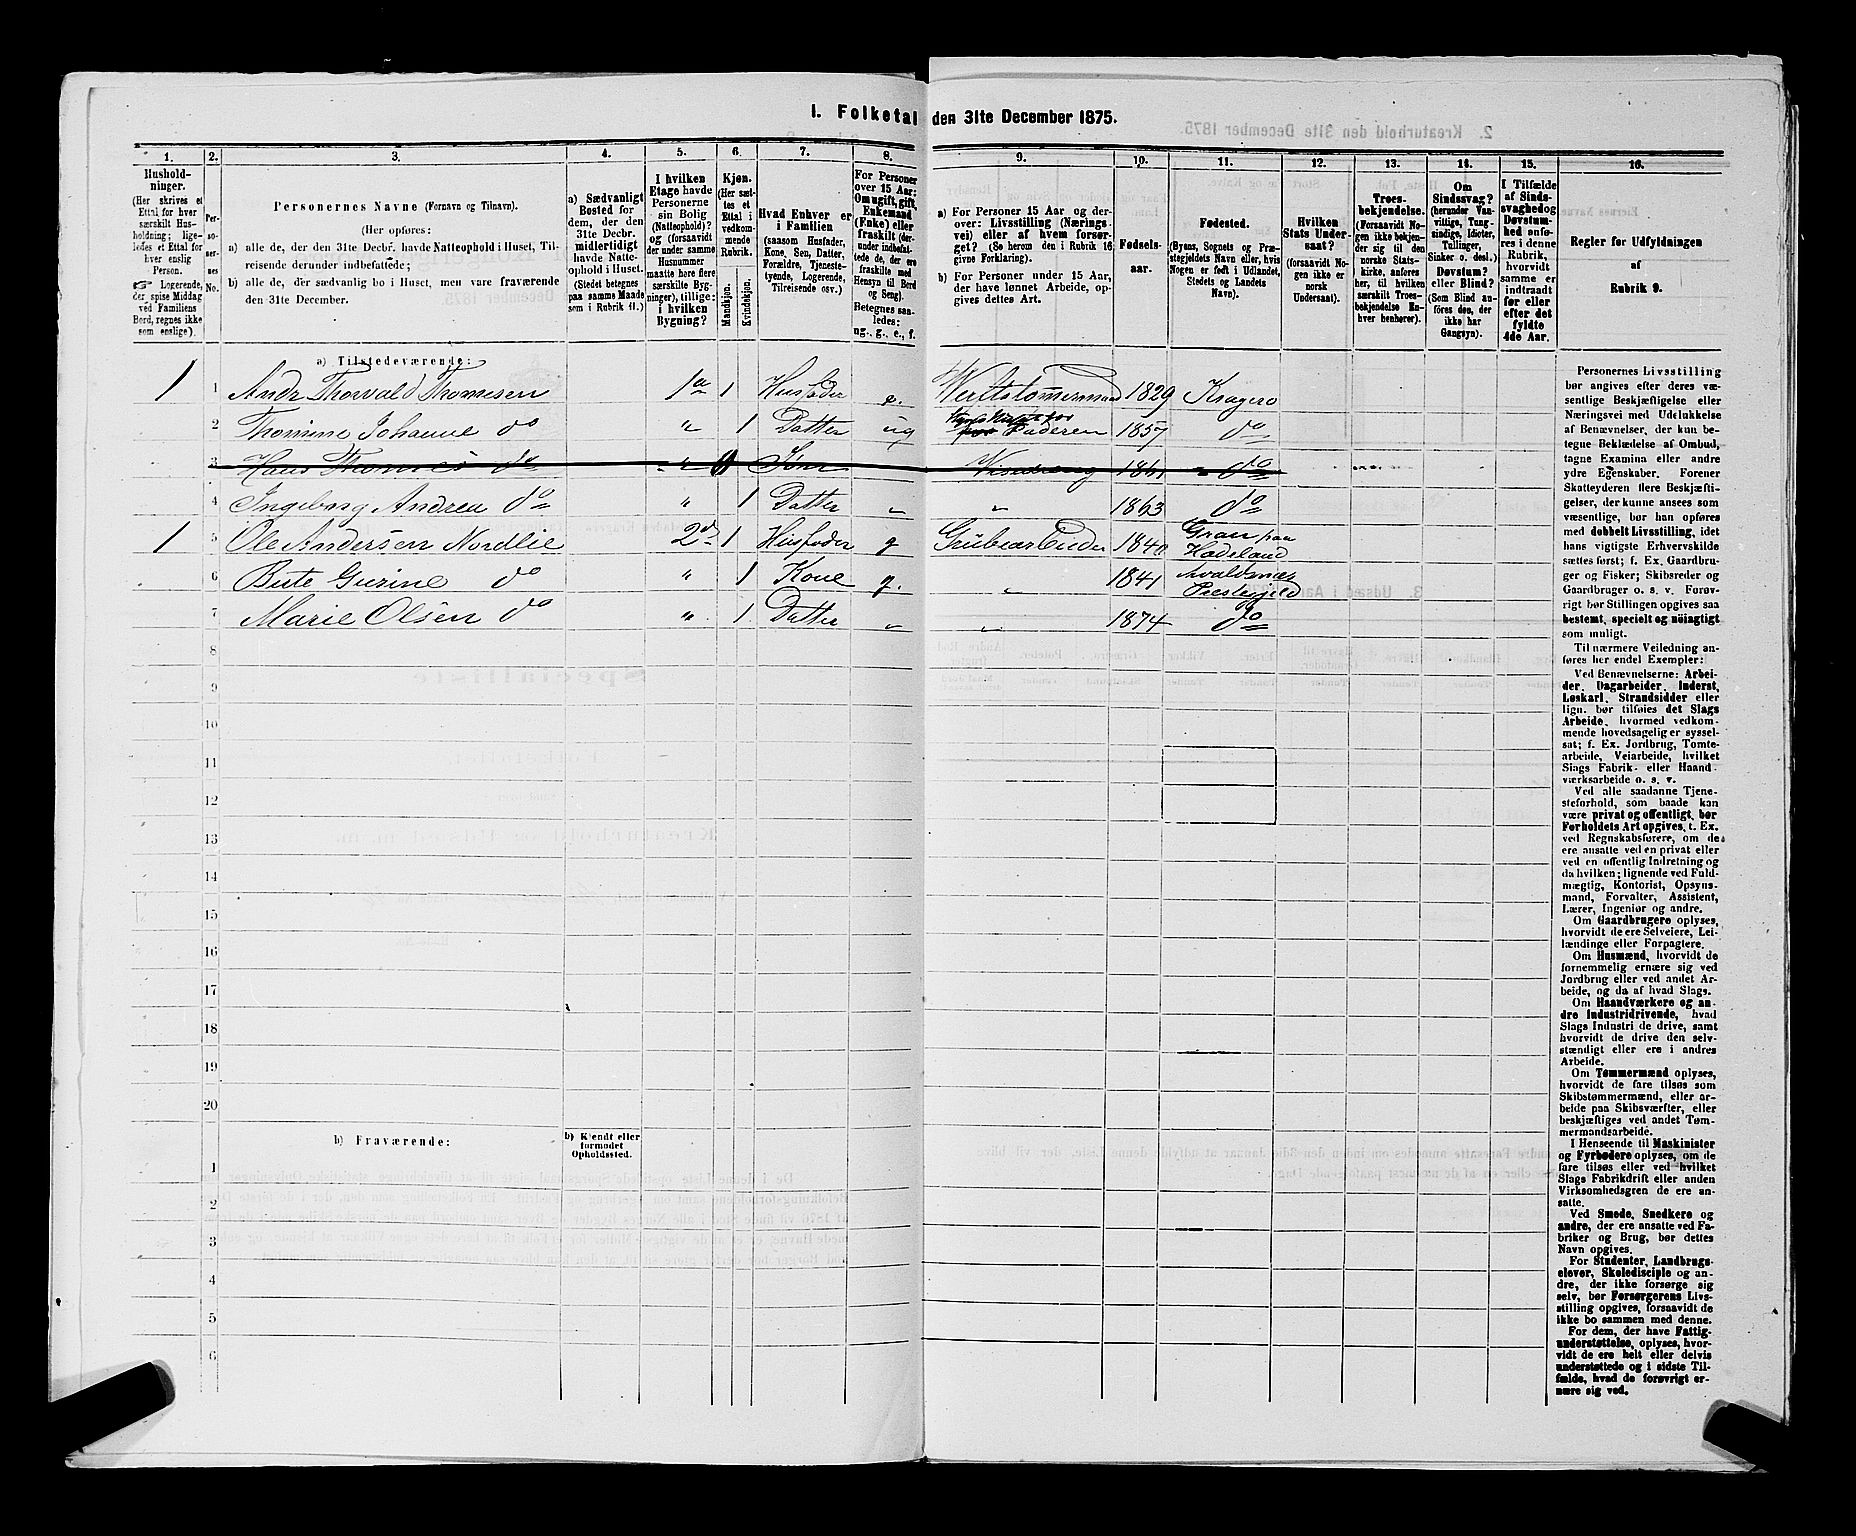 I. Folketal den 31te December 1875.
1. 2. 3. 4. 5. 6. 7. 8. 9. 10. 11. 12. 13. 14. 15. 16.
Hushold-
ninger.
(Her skrives et
Ettal for hver
særskilt Hus-
holdning; lige-
ledes et Ettal for
hver enslig
Person.
Logerende,
der spise Middag
ved Familiens
Bord, regnes ikke
som enslige).
Per-
so-
ner-
nes
No.
Personernes Navne (Fornavn og Tilnavn).
(Her opføres:
a) alle de, der den 31te Decbr. havde Natteophold i Huset, Til-
reisende derunder indbefattede;
b) alle de, der sædvanlig bo i Huset, men vare fraværende
den 31te December.
a) Sædvanligt
Bosted for
dem, der den
31te Decbr.
midlertidigt
havde Natte-
ophold i Huset.
(Stedet betegnes
paa samme Maade
som i Rubrik 11.)
I hvilken
Etage havde
Personerne
sin Bolig
(Natteophold)?
og (forsaavidt
der under samme
Husnummer
maatte høre flere
særskilte Byg-
ninger), tillige:
i hvilken
Bygning?
Kjøn.
(Her sæt-
tes et
Ettal i
vedkom-
mende
Rubrik.
Mandkjøn.
Kvindekjøn.
Hvad Enhver er
i Familien
(saasom Husfader,
Kone, Søn, Datter,
Forældre, Tjeneste-
tyende, Logerende,
Tilreisende osv.)
For Personer
over 15 Aar:
Om ugift, gift,
Enkemand
(Enke) eller
fraskilt (der-
under indbefat-
tede de, der ere
fraskilte med
Hensyn til Bord
og Seng).
Betegnes saa-
ledes:
ug., g., e., f.
a) For Personer 15 Aar og der-
over: Livsstilling (Nærings-
vei) eller af hvem forsør-
get? (Se herom den i Rubrik 16
givne Forklaring).
b) For Personer under 15 Aar,
der have lønnet Arbeide, op-
gives dettes Art.
Fødsels-
aar.
Fødested.
(Byens, Sognets og Præ-
stegjeldets Navn, eller hvis
Nogen er født i Udlandet,
Stedets og Landets
Navn).
Hvilken
Stats Under-
saat?
(forsaavidt No-
gen ikke er
norsk
Undersaat).
Troes-
bekjendelse.
(Forsaavidt No-
gen ikke bekjen-
der sig til den
norske Stats-
kirke, anføres
her, til hvilken
særskilt Troes-
bekjendelse En-
hver henhører).
Om
Sindssvag?
(herunder Van-
vittige, Tung-
sindige, Idioter,
Tullinger,
Sinker o. desl.)
Døvstum?
eller Blind?
(Som Blind an-
føres den, der
ikke har
Gangsyn).
I Tilfælde
af Sinds-
svaghed og
Døvstum-
hed anfø-
res i denne
Rubrik,
hvorvidt
samme er
indtraadt
før eller
efter det
fyldte
4de Aar.
Regler for Udfyldningen
af
Rubrik 9.
a) Tilstedeværende:
1 1 Andr Thorvald Thomesen 1 a 1 Husfader e. Werftstømmermand 1829 Kragerø
2 Thomine Johanne do " 1 Datter ug Faderen 1857 do
3 Hans Thomes do " Søn 1861 do
4 Ingeborg Andrea do " 1 Datter " " 1863 do
1 5 Ole Andersen Nordlie 2 d 1 Husfader g Grubearbeider 1840 Gran paa
Hadeland
6 Berte Gurine do " 1 Kone g. " 1841 Avaldsnæs
Prestegjeld
7 Marie Olsen do " 1 Datter " " 1874 do
8
9
10
11
12
13
14
15
16
17
18
19
20
b) Fraværende:
b) Kjendt eller
formodet
Opholdssted.
1
2
3
4
5
6
Personernes Livsstilling
bør angives efter deres væ-
sentlige Beskjæftigelse eller
Næringsvei med Udelukkelse
af Benævnelser, der kun be-
tegne Beklædelse af Ombud,
tagne Examina eller andre
ydre Egenskaber. Forener
Skatteyderen flere Beskjæfti-
gelser, der kunne ansees som
væsentlige, bør han opføres
med dobbelt Livsstilling, idet
hans vigtigste Erhvervskilde
sættes først; f. Ex. Gaardbru-
ger og Fisker; Skibsreder og
Gaardbruger o. s. v. Forøv-
rigt bør Stillingen opgives saa
bestemt, specielt og nøiagtigt
som muligt.
Til nærmere Veiledning an-
føres her endel Exempler:
Ved Benævnelserne: Arbei-
der, Dagarbeider, Inderst,
Løskarl, Strandsidder eller
lign. bør tilføies det Slags
Arbeide, hvormed vedkom-
mende hovedsagelig er syssel-
sat; f. Ex. Jordbrug, Tomte-
arbeide, Veiarbeide, hvilket
Slags Fabrik- eller Haand-
værksarbeide o. s. v.
Ved alle saadanne Tjene-
steforhold, som baade kan
være privat og offentligt, bør
Forholdets Art opgives, t. Ex.
ved Regnskabsførere, om de
ere ansatte ved en privat eller
ved en offentlig Indretning og
da hvilken; lignende ved Fuld-
mægtig, Kontorist, Opsyns-
mand, Forvalter, Assistent,
Lærer, Ingeniør og andre.
Om Gaardbrugere oplyses,
hvorvidt de ere Selveiere, Lei-
lændinge eller Forpagtere.
Om Husmænd, hvorvidt de
fornemmelig ernære sig ved
Jordbrug eller ved andet Ar-
beide, og da af hvad Slags.
Om Haandværkere og an-
dre Industridrivende, hvad
Slags Industri de drive, samt
hvorvidt de drive den selv-
stændigt eller ere i andres
Arbeide.
Om Tømmermænd oplyses,
hvorvidt de fare tilsøs som
Skibstømmermænd, eller ar-
beide paa Skibsværfter, eller
beskjæftiges ved andet Tøm-
mermandsarbeide.
I Henseende til Maskinister
og Fyrbødere oplyses, om de
fare tilsøs eller ved hvilket
Slags Fabrikdrift eller anden
Virksomhedsgren de ere an-
satte.
Ved Smede, Snedkere og
andre, der ere ansatte ved Fa-
briker og Brug, bør dettes
Navn opgives.
For Studenter, Landbrugs-
elever, Skoledisciple og an-
dre, der ikke forsørge sig
selv, bør Forsørgerens Livs-
stilling opgives, forsaavidt de
ikke bo sammen med denne.
For dem, der have Fattig-
understøttelse, oplyses, hvor-
vidt de ere helt eller delvis
understøttede og i sidste Til-
fælde, hvad de forøvrigt er-
nære sig ved.